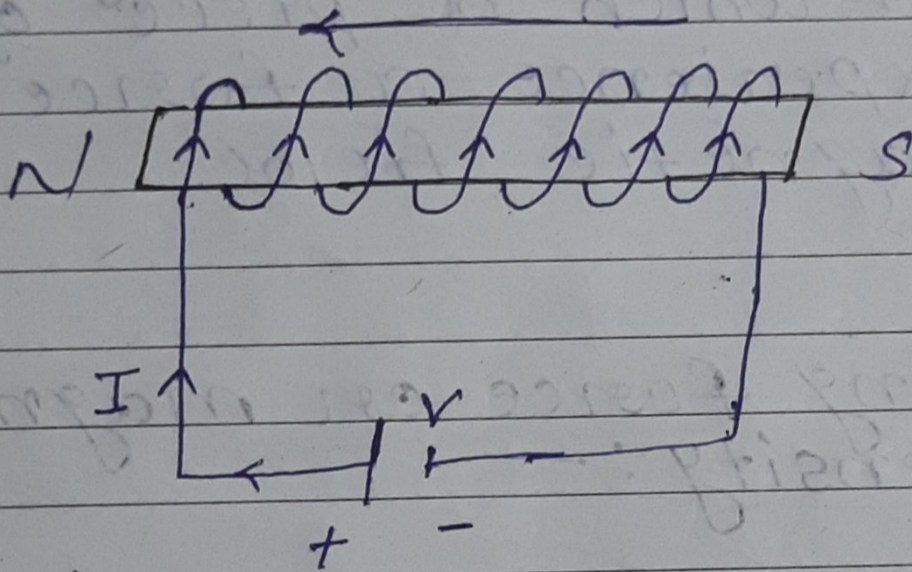 N S
I
V
+ -